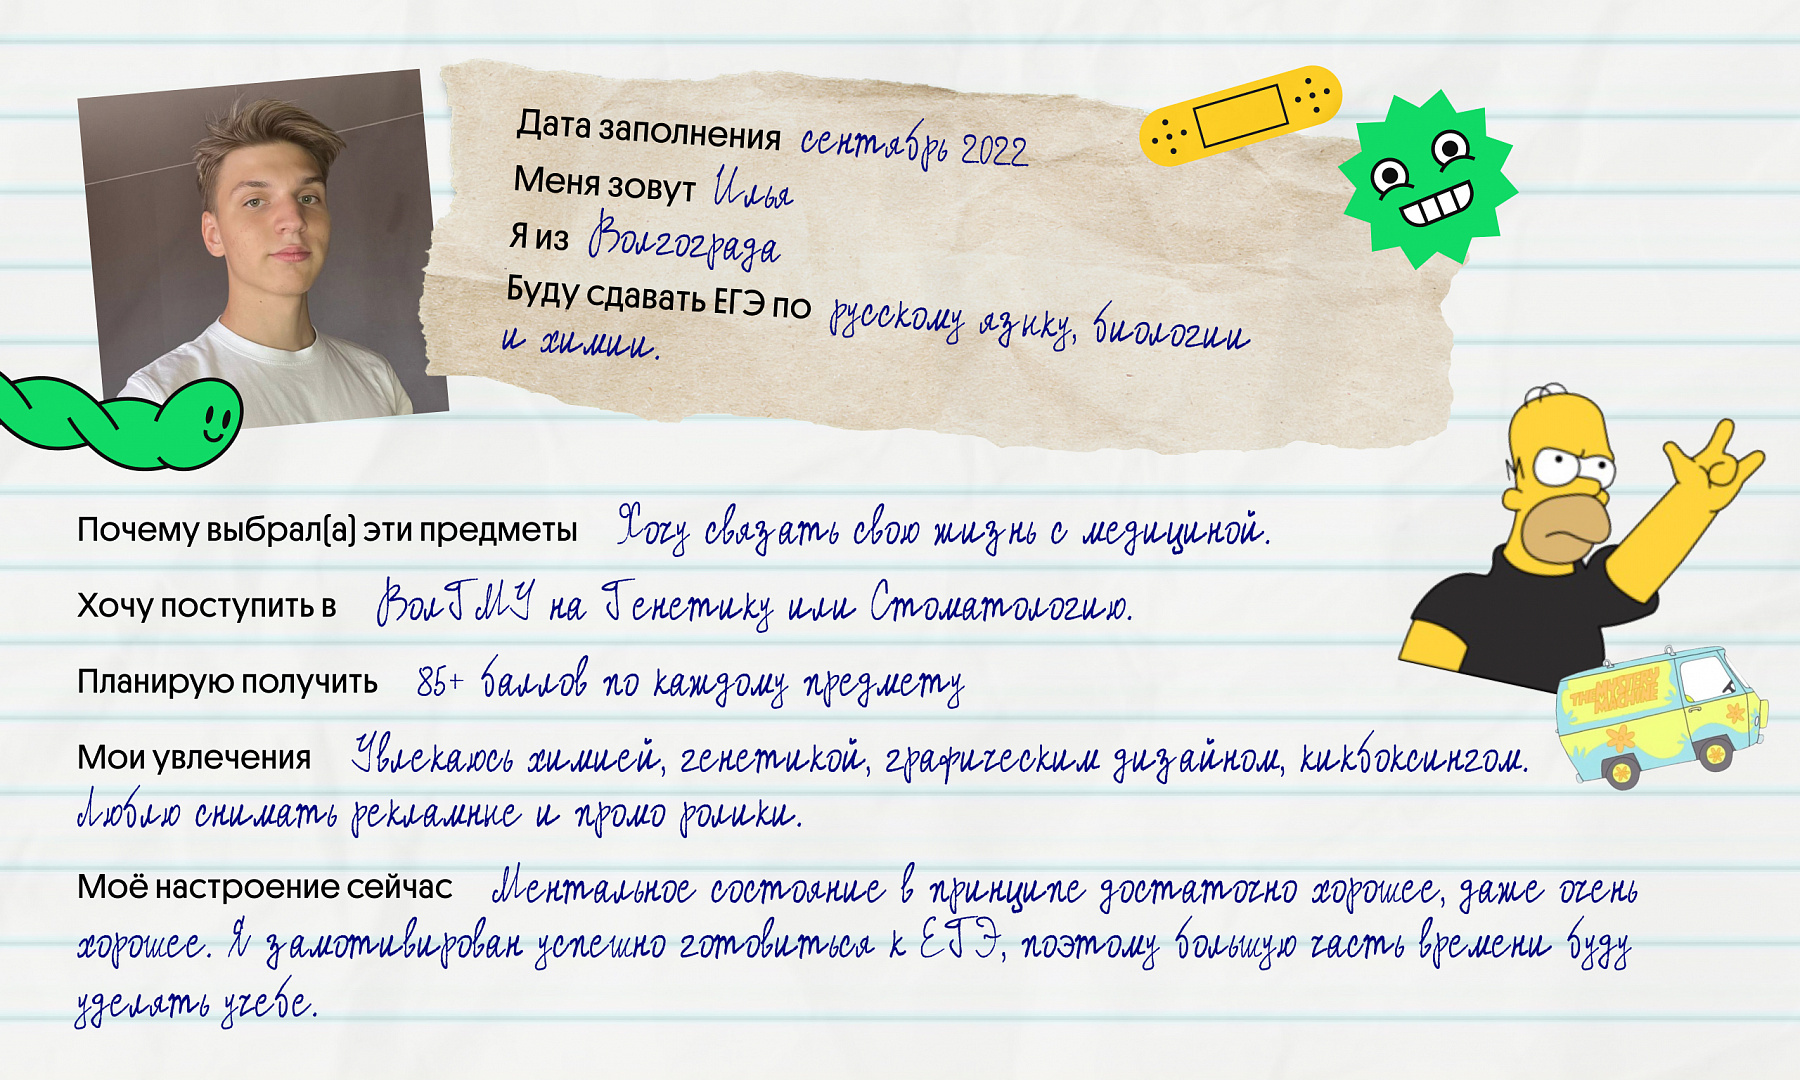 Дата заполнения сентябрь 2022
Меня зовут Илья
Я из Волгограда
Буду сдавать ЕГЭ по русскому языку, биологии
и химии.
Почему выбрал(а) эти предметы Хочу связать свою жизнь с медициной.
Хочу поступить в ВолГМУ на Генетику или Стоматологию.
Планирую получить 85+ баллов по каждому предмету
THE MYSTERY
MACHINE
Мои увлечения Увлекаюсь химией, генетикой, графическим дизайном, кикбоксингом.
Люблю снимать рекламные и промо ролики.
Моё настроение сейчас Ментальное состояние в принципе достаточно хорошее, даже очень
хорошее. Я замотивирован успешно готовиться к ЕГЭ, поэтому большую часть времени буду
уделять учебе.